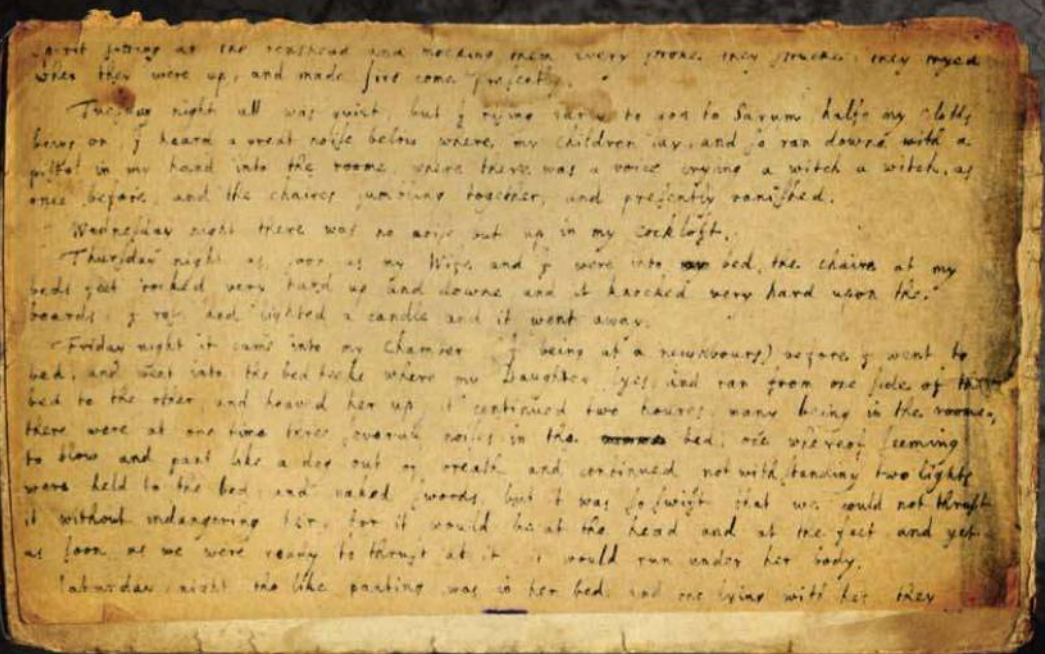 spirit sitting at the and mocking them every stroke they strucke. they
when they were up, and made fire come presently.
Tuesday night all was quiet, but I rising early to goe to Sarum halfe my cloths
being on I heard a great noise below where my children lay, and so ran downe with a
pistol in my hand into the roome, where there was a voice crying a witch a witch, as
once before, and the chaires jumbling together, and presently vanished.
Wednesday night there was no noise but up in my cockloft.
Thursday night as soon as my Wife and I were into bed, the chaire at my
beds feet rocked very hard up and downe and it knocked very hard upon the
boards. I rose and lighted a candle and it went away.
Friday night it came into my Chamber (I being at a neighbours) before I went to
bed, and went into the bed where my Daughter lyes, and ran from one side of the
bed to the other, and heaved her up, it continued two houres, many being in the roome,
there were at one time three severall noises in the bed, one whereof seeming
to blow and pant like a dog out of breath and continued notwithstanding two lights
were held to the bed and naked swords, but it was so swift that we could not thrust
it without indangering her, for it would be at the head and at the feet and yet
as soon as we were ready to thrust at it it would run under her body.
Saturday night the like panting was in her bed, and one lying with her they